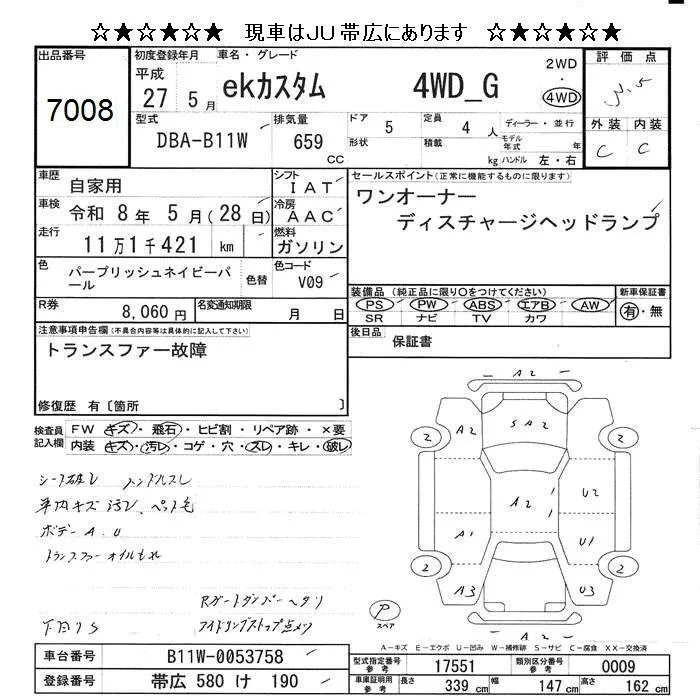 ☆★☆★☆★ 現車はJU帯広にあります ☆★☆★☆★
出品番号
7008
初度登録年月
平成 27 5月
車名・グレード
ekカスタム 4WD_G
2WD
・
4WD
評価点
3.5
外装 内装
C C
型式
DBA-B11W
排気量
659
cc
ドア 5
形状
定員 4 人
積載 kg
ディーラー・並行
モデル年式 年
ハンドル 左・右
車歴
自家用
シフト
IAT
セールスポイント(正常に機能するものに限ります)
ワンオーナー
ディスチャージヘッドランプ
車検
令和 8年 5月(28日)
冷房
AAC
走行
11万1千421 km
燃料
ガソリン
色
パープリッシュネイビーパール
色替
色コード
V09
装備品(純正品に限り○をつけてください)
PS PW ABS エアB AW
SR ナビ TV カワ
新車保証書
有・無
R券
8,060円
名変通知期限
月 日
後日品
保証書
注意事項申告欄(不具合内容等は具体的に記入して下さい)
トランスファー故障
修復歴 有〔箇所 〕
検査員記入欄
FW キズ・飛石・ヒビ割・リペア跡・×要
内装 キズ・汚レ・コゲ・穴・スレ・キレ・破レ
シート破レ ハンドルスレ
車内キズ汚レ、ペット毛
ボデーA.U
トランスファーオイルもれ
Rゲートダンパーヘタリ
下回りS
アイドリングストップ点メツ
A2
2
A2
SA2
2
A2
U2
A1
U1
2
A3
2
U3
A2
P
スペア
A-キズ E-エクボ U-凹み W-補修跡 S-サビ C-腐食 XX-交換済
車台番号
B11W-0053758
型式指定番号 参考
17551
類別区分番号 参考
0009
登録番号
帯広 580 け 190
車庫証明用 参考
長さ 339 cm
幅 147 cm
高さ 162 cm